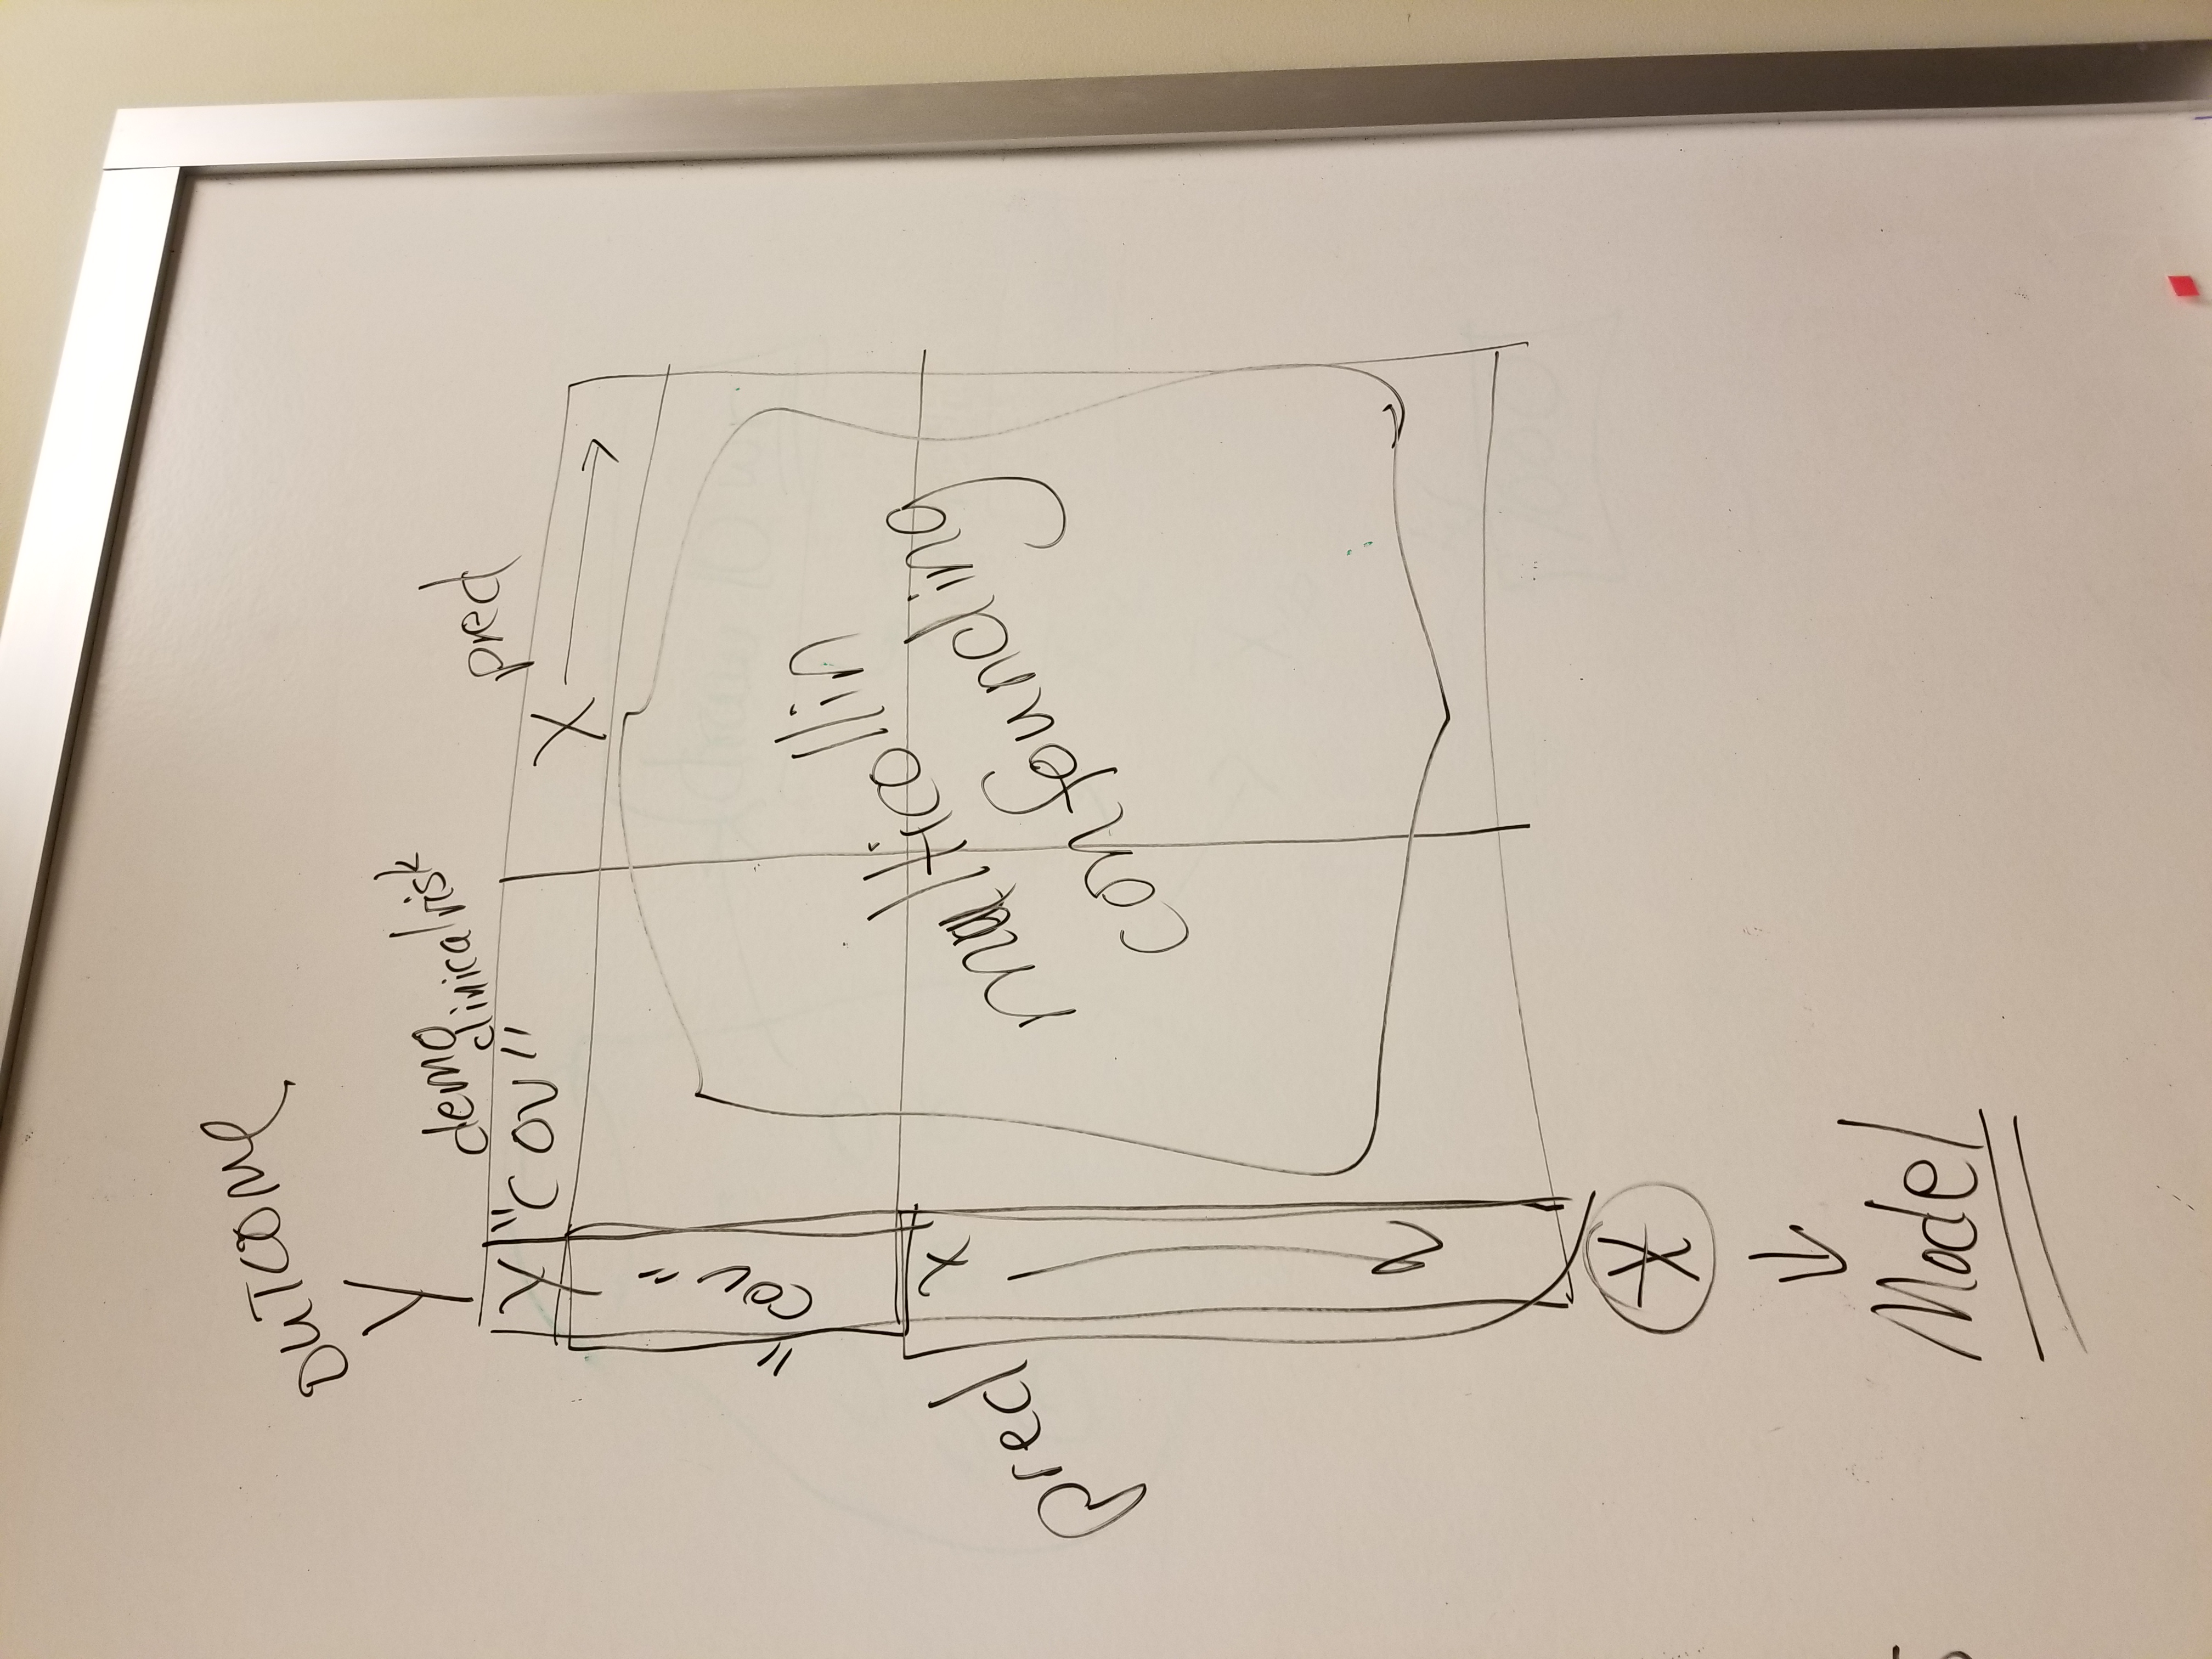 OUTCOME
Y
demo
clinical risk
pred
Y "COV" X
"COV"
pred
X
multicollin
confounding
X
Model